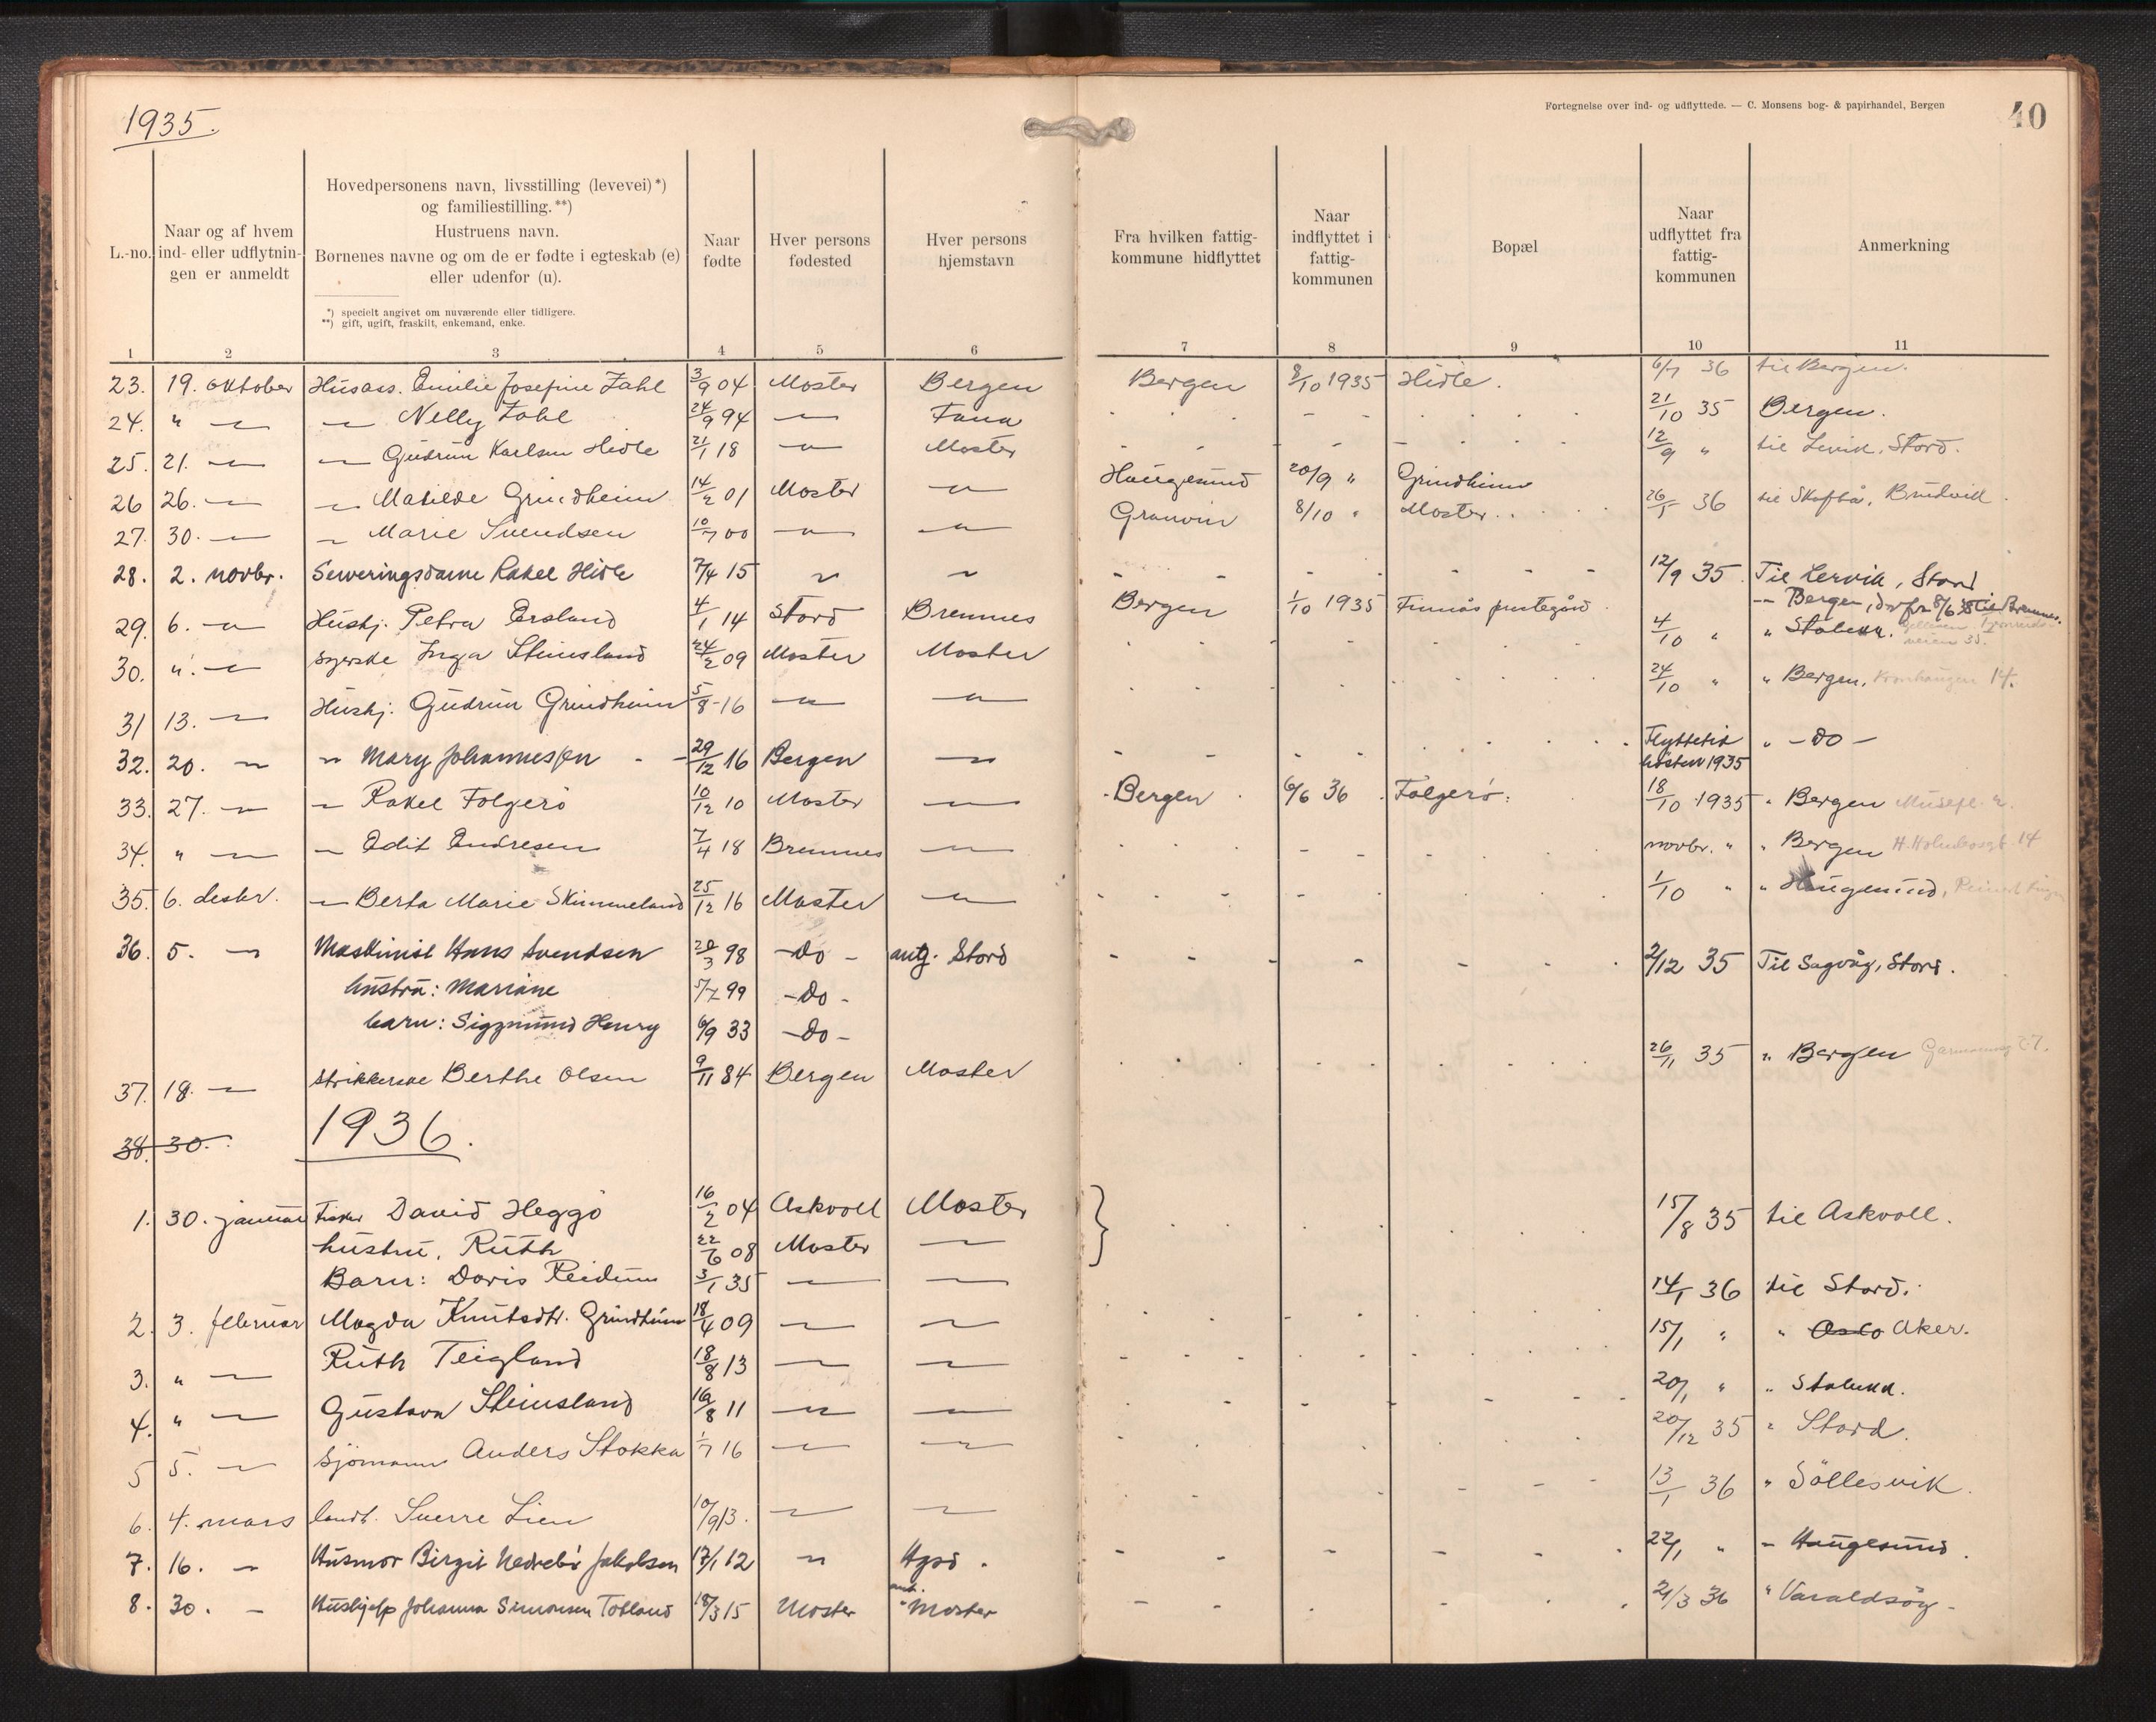 1935.
Fortegnelse over ind- og udflyttede. — C. Monsens bog- & papirhandel, Bergen
40
L.-no.
Naar og af hvem ind- eller udflytningen er anmeldt
Hovedpersonens navn, livsstilling (levevei)*) og familiestilling.**)
Hustruens navn.
Børnenes navne og om de er fødte i egteskab (e) eller udenfor (u).
*) specielt angivet om nuværende eller tidligere.
**) gift, ugift, fraskilt, enkemand, enke.
Naar fødte
Hver persons fødested
Hver persons hjemstavn
Fra hvilken fattigkommune hidflyttet
Naar indflyttet i fattigkommunen
Bopæl
Naar udflyttet fra fattigkommunen
Anmerkning
1 2 3 4 5 6 7 8 9 10 11
23. 19. oktober Husass. Emilie Josefine Zahl 3/9 04 Moster Bergen Bergen 8/10 1935 Hidle. 6/7 36 til Bergen.
24. " — — Nelly Zahl 24/9 94 — Fana 21/10 35 Bergen.
25. 21. — — Gudrun Karlsen Hidle 21/1 18 — Moster 12/9 " til Lervik, Stord.
26 26. — — Matilde Grindheim 14/2 01 Moster — Haugesund 20/9 " Grindheim
27. 30. — — Marie Svendsen 10/7 00 — — Granvin 8/10 " Moster. 26/1 36 til Skaftå, Bruvik.
28. 2. novbr. Serveringsdame Rakel Hidle 7/4 15 " " 12/9 35. Til Lervik, Stord
29. 6. — Hushj. Petra Ersland 4/1 14 Stord Bremnes Bergen 1/10 1935 Finnås prestegård — Bergen, derfra 8/6 38 til Bremnes.
30. " — syerske Inga Steinsland 24/2 09 Moster Moster 4/10 " " Stabekk.
31 13. — Hushj. Gudrun Grindheim 5/8 -16 — — 24/10 " " Bergen, Kronhaugen 14.
32. 20. — " Mary Johannessen - - 29/12 16 Bergen — Flyttetid høsten 1935 " — do —
33. 27. — — Rakel Folgerö 10/12 10 Moster — Bergen 6/6 36 Folgerö. 18/10 1935 " Bergen
34. " — — Edit Andresen 7/4 18 Bremnes — novbr. " " Bergen H. Holmboesgt. 14
35. 6. desbr. — Berta Marie Skimmeland 25/12 16 Moster — 1/10 " " Haugesund,
36. 5. — Maskinist Hans Svendsen 20/3 98 — do — antg. Stord 2/12 35 Til Sagvåg, Stord.
hustru: Mariane 5/7 99 — do -
barn: Sigmund Henry 6/9 33 — do —
37. 18. — strikkerske Berthe Olsen 9/11 84 Bergen Moster 26/11 35 " Bergen
38. 30.
1936.
1. 30. januar Fisker David Heggö 16/2 04 Askvoll Moster } 15/8 35 til Askvoll.
hustru, Ruth 22/6 08 Moster —
Barn: Doris Reidun 3/1 35 — —
2. 3. februar Magda Knutsdtr. Grindheim 18/4 09 — — 14/1 36 til Stord.
3. " — Ruth Teigland 18/8 13 — — 15/1 " " Oslo Aker.
4. " — Gustava Steinsland 16/8 11 — — 20/1 " " Stabekk.
5 5. — Sjömann Anders Stokka 1/7 16 — — 20/12 35 " Stord.
6. 4. mars landt. Sverre Lien 10/9 13. — — 13/1 36 " Söllesvik.
7. 16. — Husmor Birgit Nedrebö Jakobsen 17/1 12 " Hgsd. 22/1 " — Haugesund.
8. 30. — Hushjelp Johanna Simonsen Totland 18/3 15 Moster ant. Moster 21/3 36 " Varaldsöy -